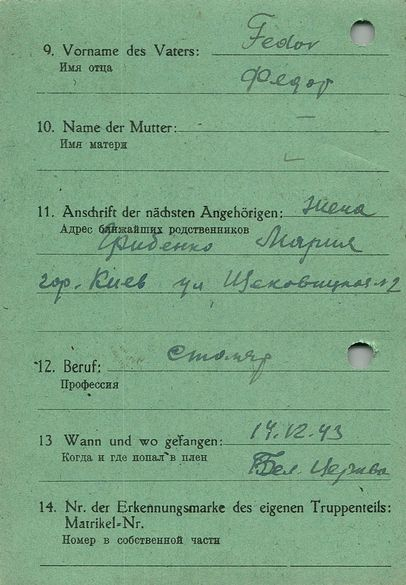 9. Vorname des Vaters: Fedor
Имя отца Федор
10. Name der Mutter: —
Имя матери —
11. Anschrift der nächsten Angehörigen: жена
Адрес ближайших родственников
Грибенко Мария
гор. Киев ул Щековицкая 12
12. Beruf: столяр
Профессия
13 Wann und wo gefangen: 14.12.43
Когда и где попал в плен Бел. Церква
14. Nr. der Erkennungsmarke des eigenen Truppenteils:
Matrikel-Nr.
Номер в собственной части